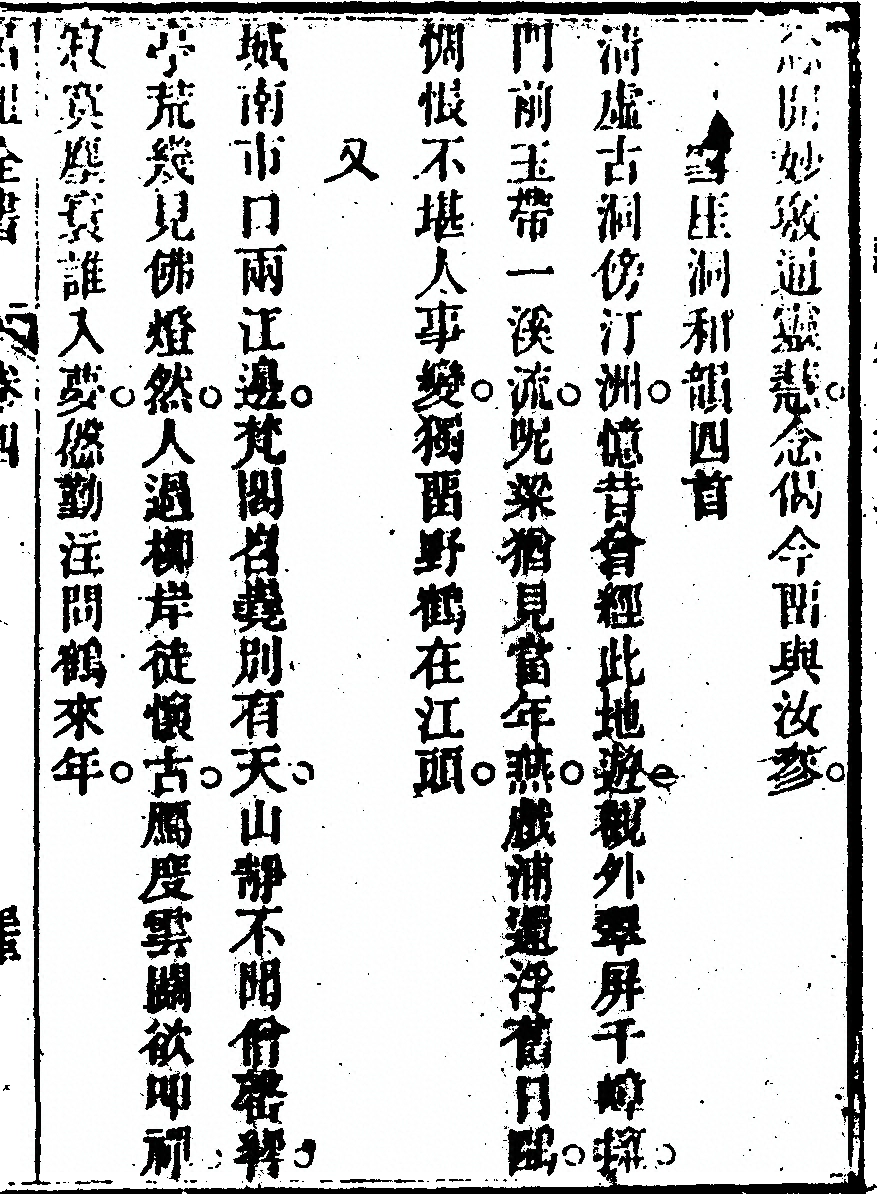 開妙徼通靈慧○念偈今畱與汝參○
雪崖洞和韻四首
清虛古洞傍汀洲○憶昔曾經此地遊○觀外翠屏千嶂擁○
門前玉帶一溪流○呢梁猶見當年燕○戲浦還浮舊日鷗○
惆悵不堪人事變○獨畱野鶴在江頭○
又
城南市口兩江邊○梵閣岧嶤別有天○山靜不聞僧罄響○
亭荒幾見佛燈然○人過柳岸徒懷古○鴈度雲關欲叩禪○
寂寞塵寰誰入夢○慇勤注問鶴來年○
呂祖全書 卷四